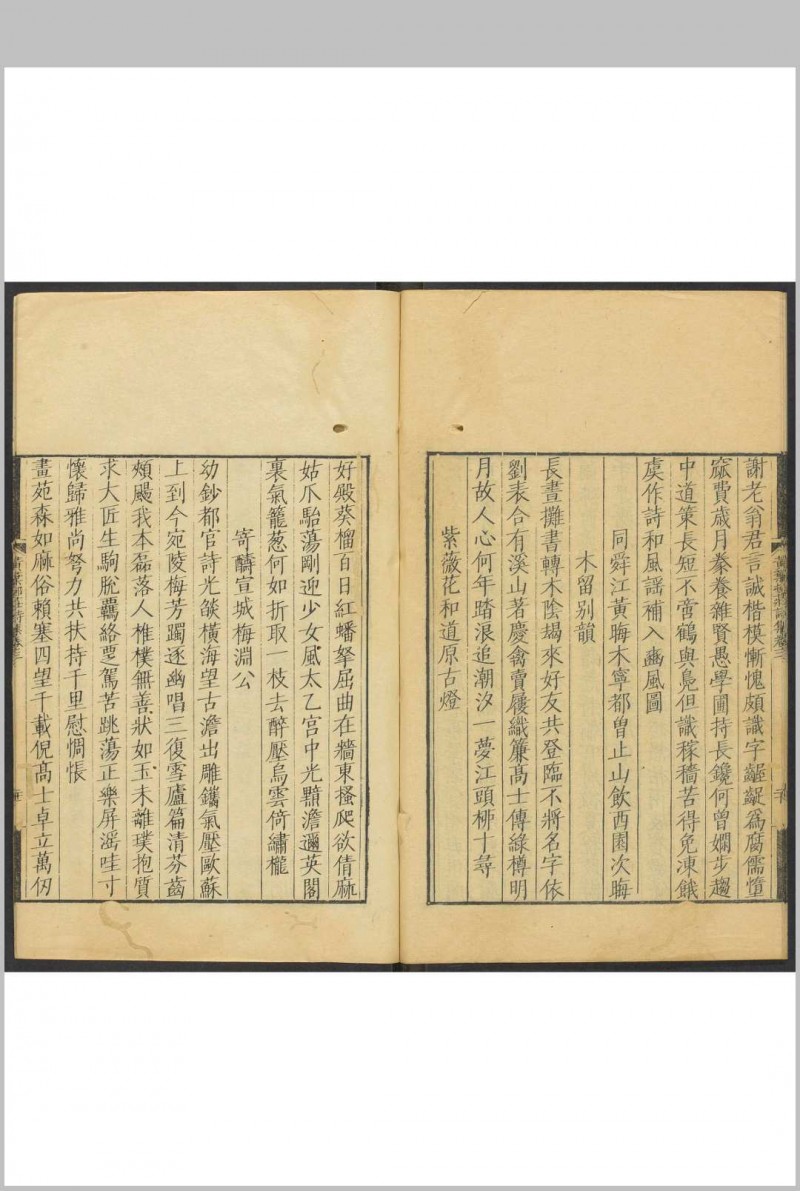 謝老翁君言誠楷模慚愧頗識字齷齪為腐儒墮
窳費歲月豢養雜賢愚學圃持長鑱何曾嫻步趨
中道策長短不啻鶴與鳧但識稼穡苦得免凍餓
虞作詩和風謠補入豳風圖
同舜江黃晦木寧都曾止山飲西園次晦
木留别韻
長晝攤書轉木陰朅來好友共登臨不將名字依
劉表合有溪山著慶禽賣屨織簾髙士傳綠樽明
月故人心何年踏浪追潮汐一夢江頭栁十尋
紫薇花和道原古燈
好殿葵榴百日紅蟠拏屈曲在牆東搔爬欲倩麻
姑爪駘蕩剛迎少女風太乙宮中光黯澹邇英閣
裏氣籠葱何如折取一枝去醉壓烏雲倚繡櫳
寄酬宣城梅淵公
幼鈔都官詩光燄橫海望古澹出雕鐫氣壓歐蘇
上到今宛陵梅芳躅逐幽唱三復雪廬篇清芬齒
頰颺我本磊落人椎樸無善狀如玉未離璞抱質
求大匠生駒脫覊絡耍駕苦跳蕩正樂屏滛哇寸
懷歸雅尚努力共扶持千里慰惆悵
畫苑森如麻俗賴塞四望千載倪髙士卓立萬仞